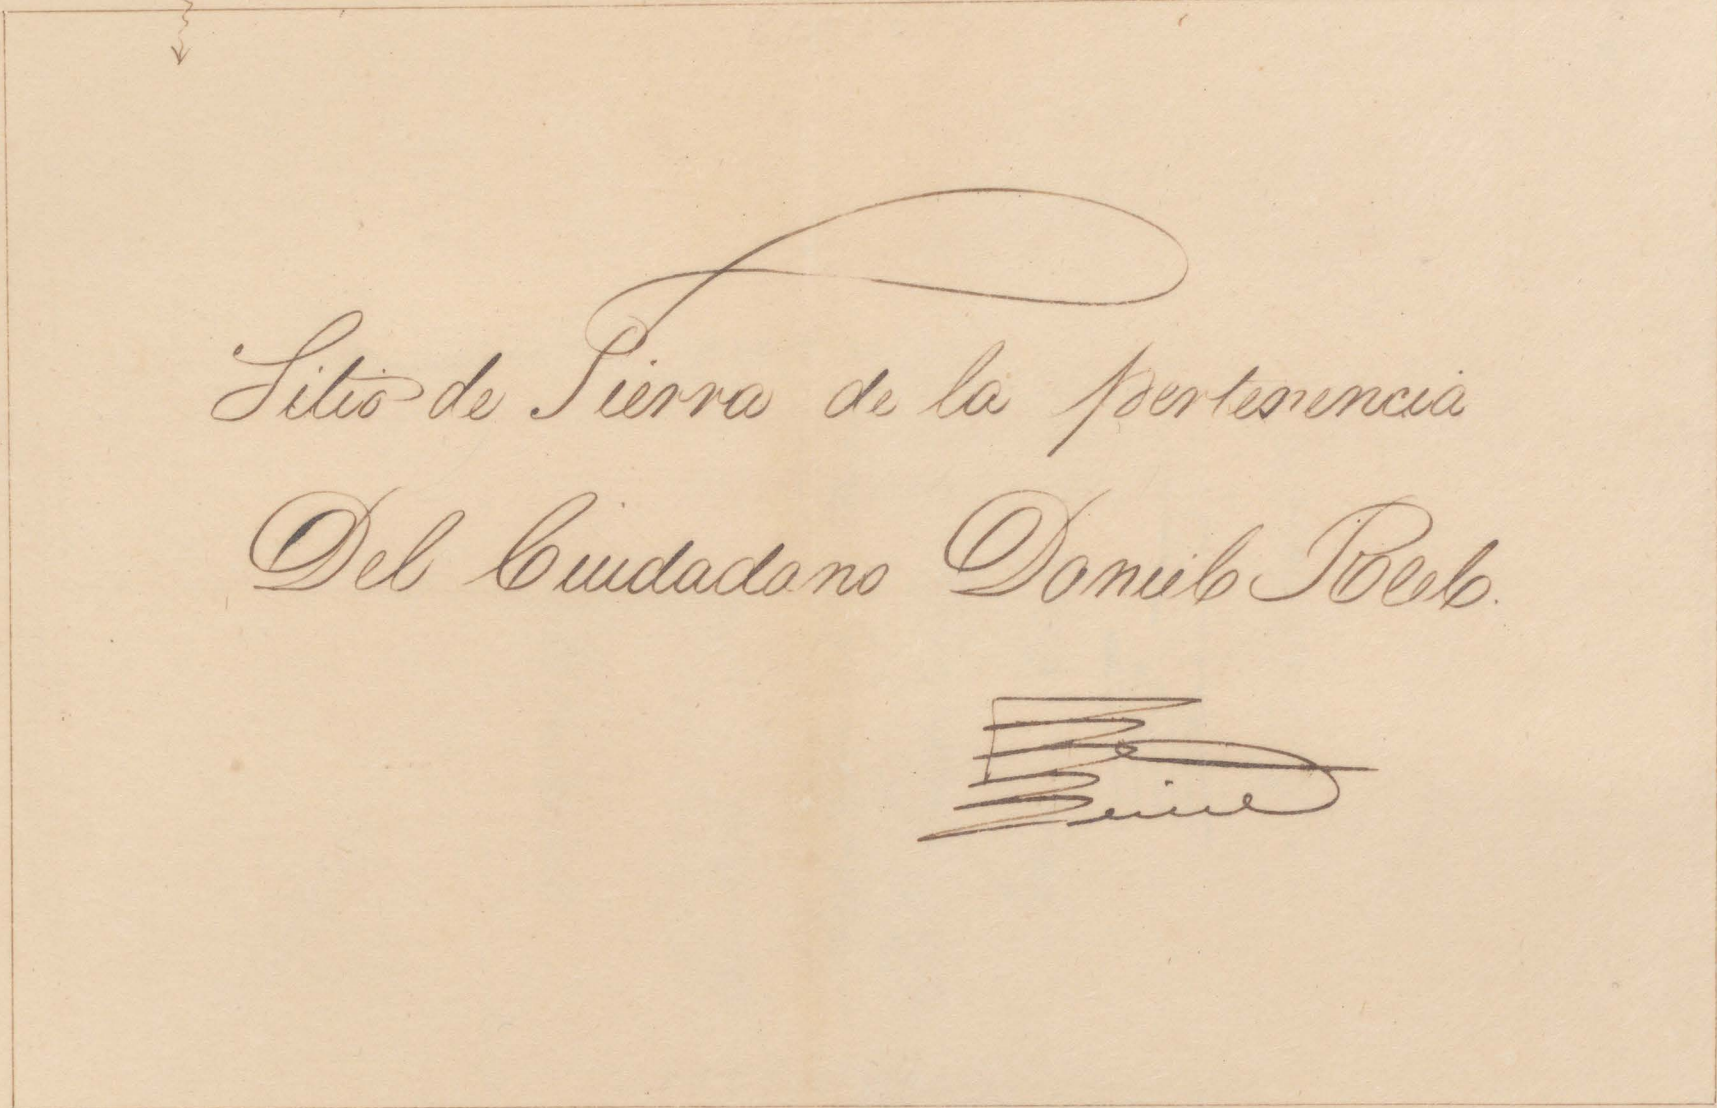 Sitio de Tierra de la pertenencia
Del Ciudadano Daniel